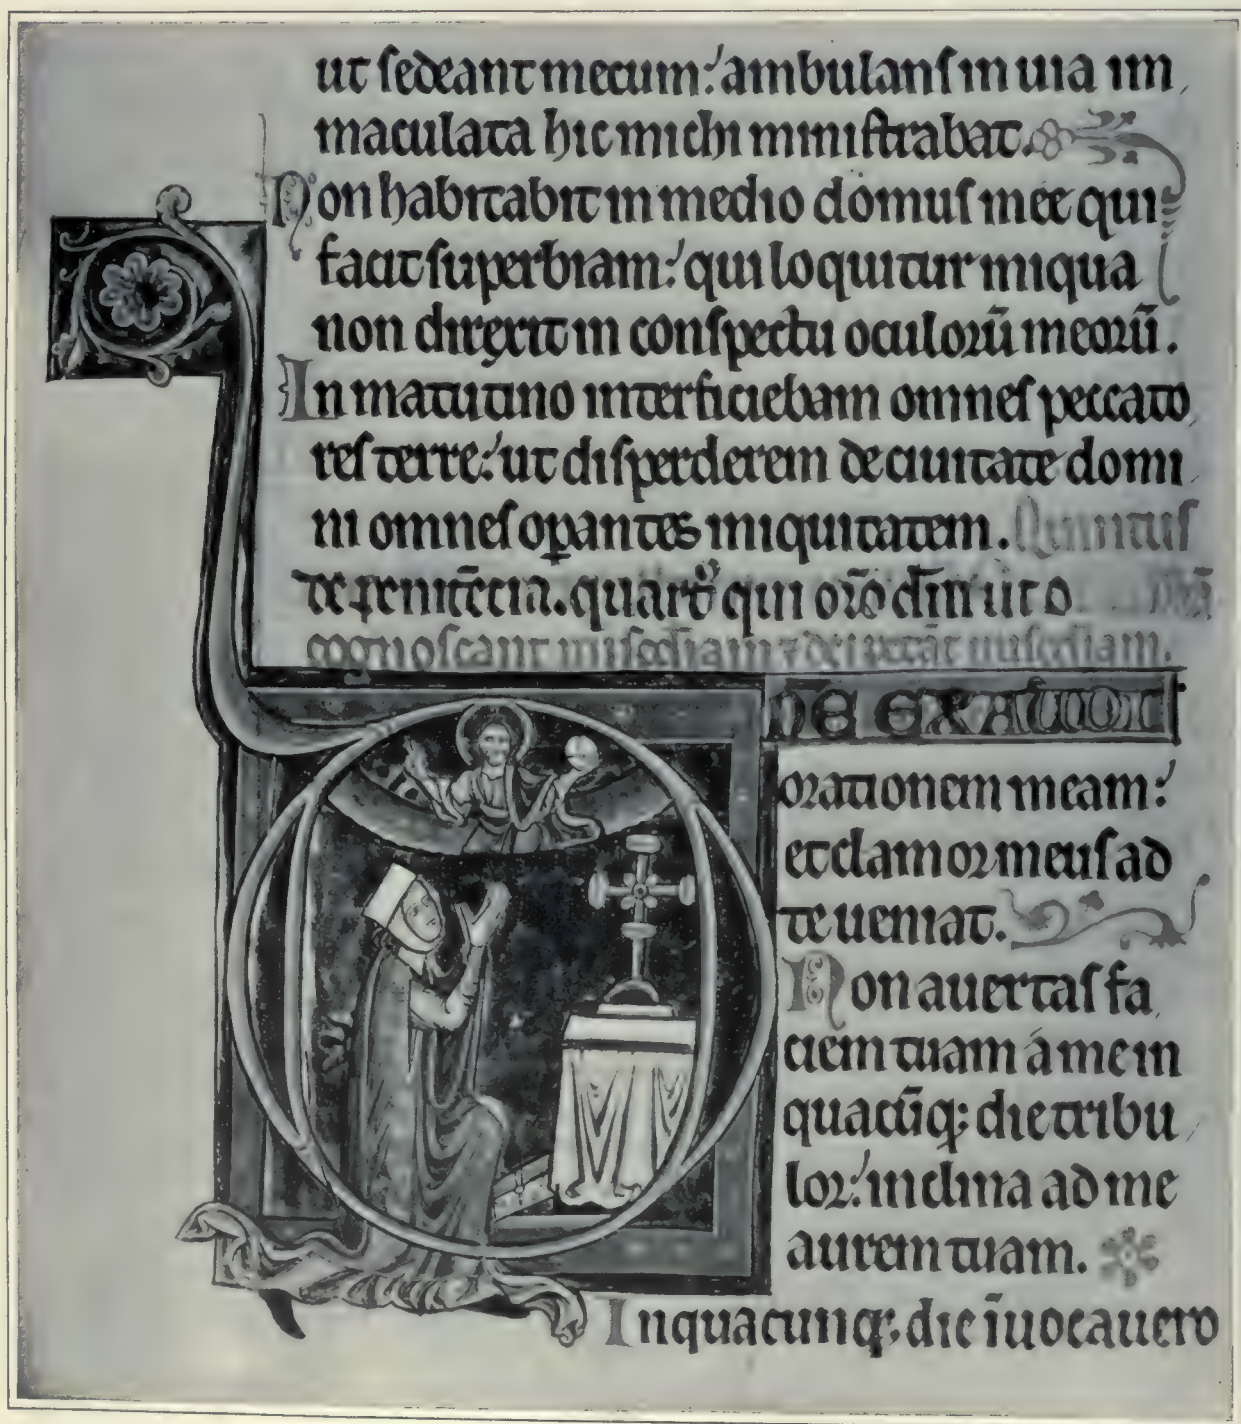 ut sedeant mecum: ambulans in uia im
maculata hic michi ministrabat.
Non habitabit in medio domus mee qui
facit superbiam: qui loquitur iniqua
non direxit in conspectu oculorū meorū.
In matutino interficiebam omnes peccato
res terre: ut disperderem de ciuitate domi
ni omnes opantes iniquitatem. Quintus
de penitēcia. quart9 qui orō dīni ut
cognoscant
NE EXAUDI
orationem meam:
et clamor meus ad
te ueniat.
Non auertas fa
ciem tuam á me in
quacūq; die tribu
lor: inclina ad me
aurem tuam.
In quacunq; die īuocauero